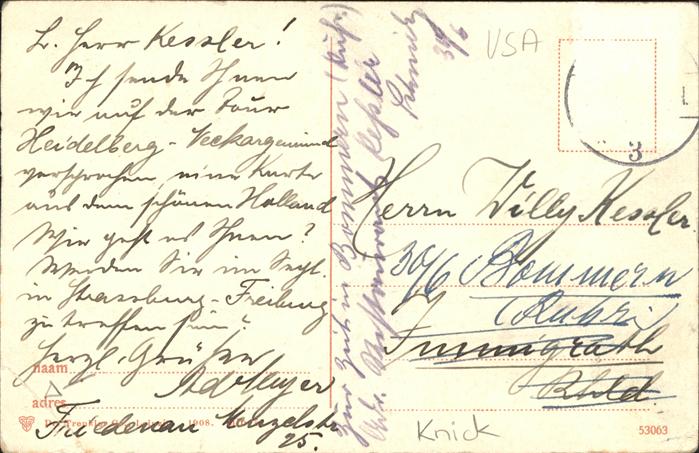 L. Herr Kessler!
Ich sende Ihnen
wie auf der Tour
Heidelberg-Neckargemünd
versprochen, eine Karte
aus dem schönen Holland
Wie geht es Ihnen?
Werden Sie im Sept.
in Strassburg-Freiburg
zu treffen sein?
Herzl. Grüße
Ad. Meyer
Friedenau Menzelstr
25.
naam
adres
1908.
Zur Zeit in Bommern (Ruhr)
Kessler
30/6
USA
3
Herrn Willy Kessler.
30/6 Bommern
(Ruhr)
Immigrath
Rhld.
Knick
53063